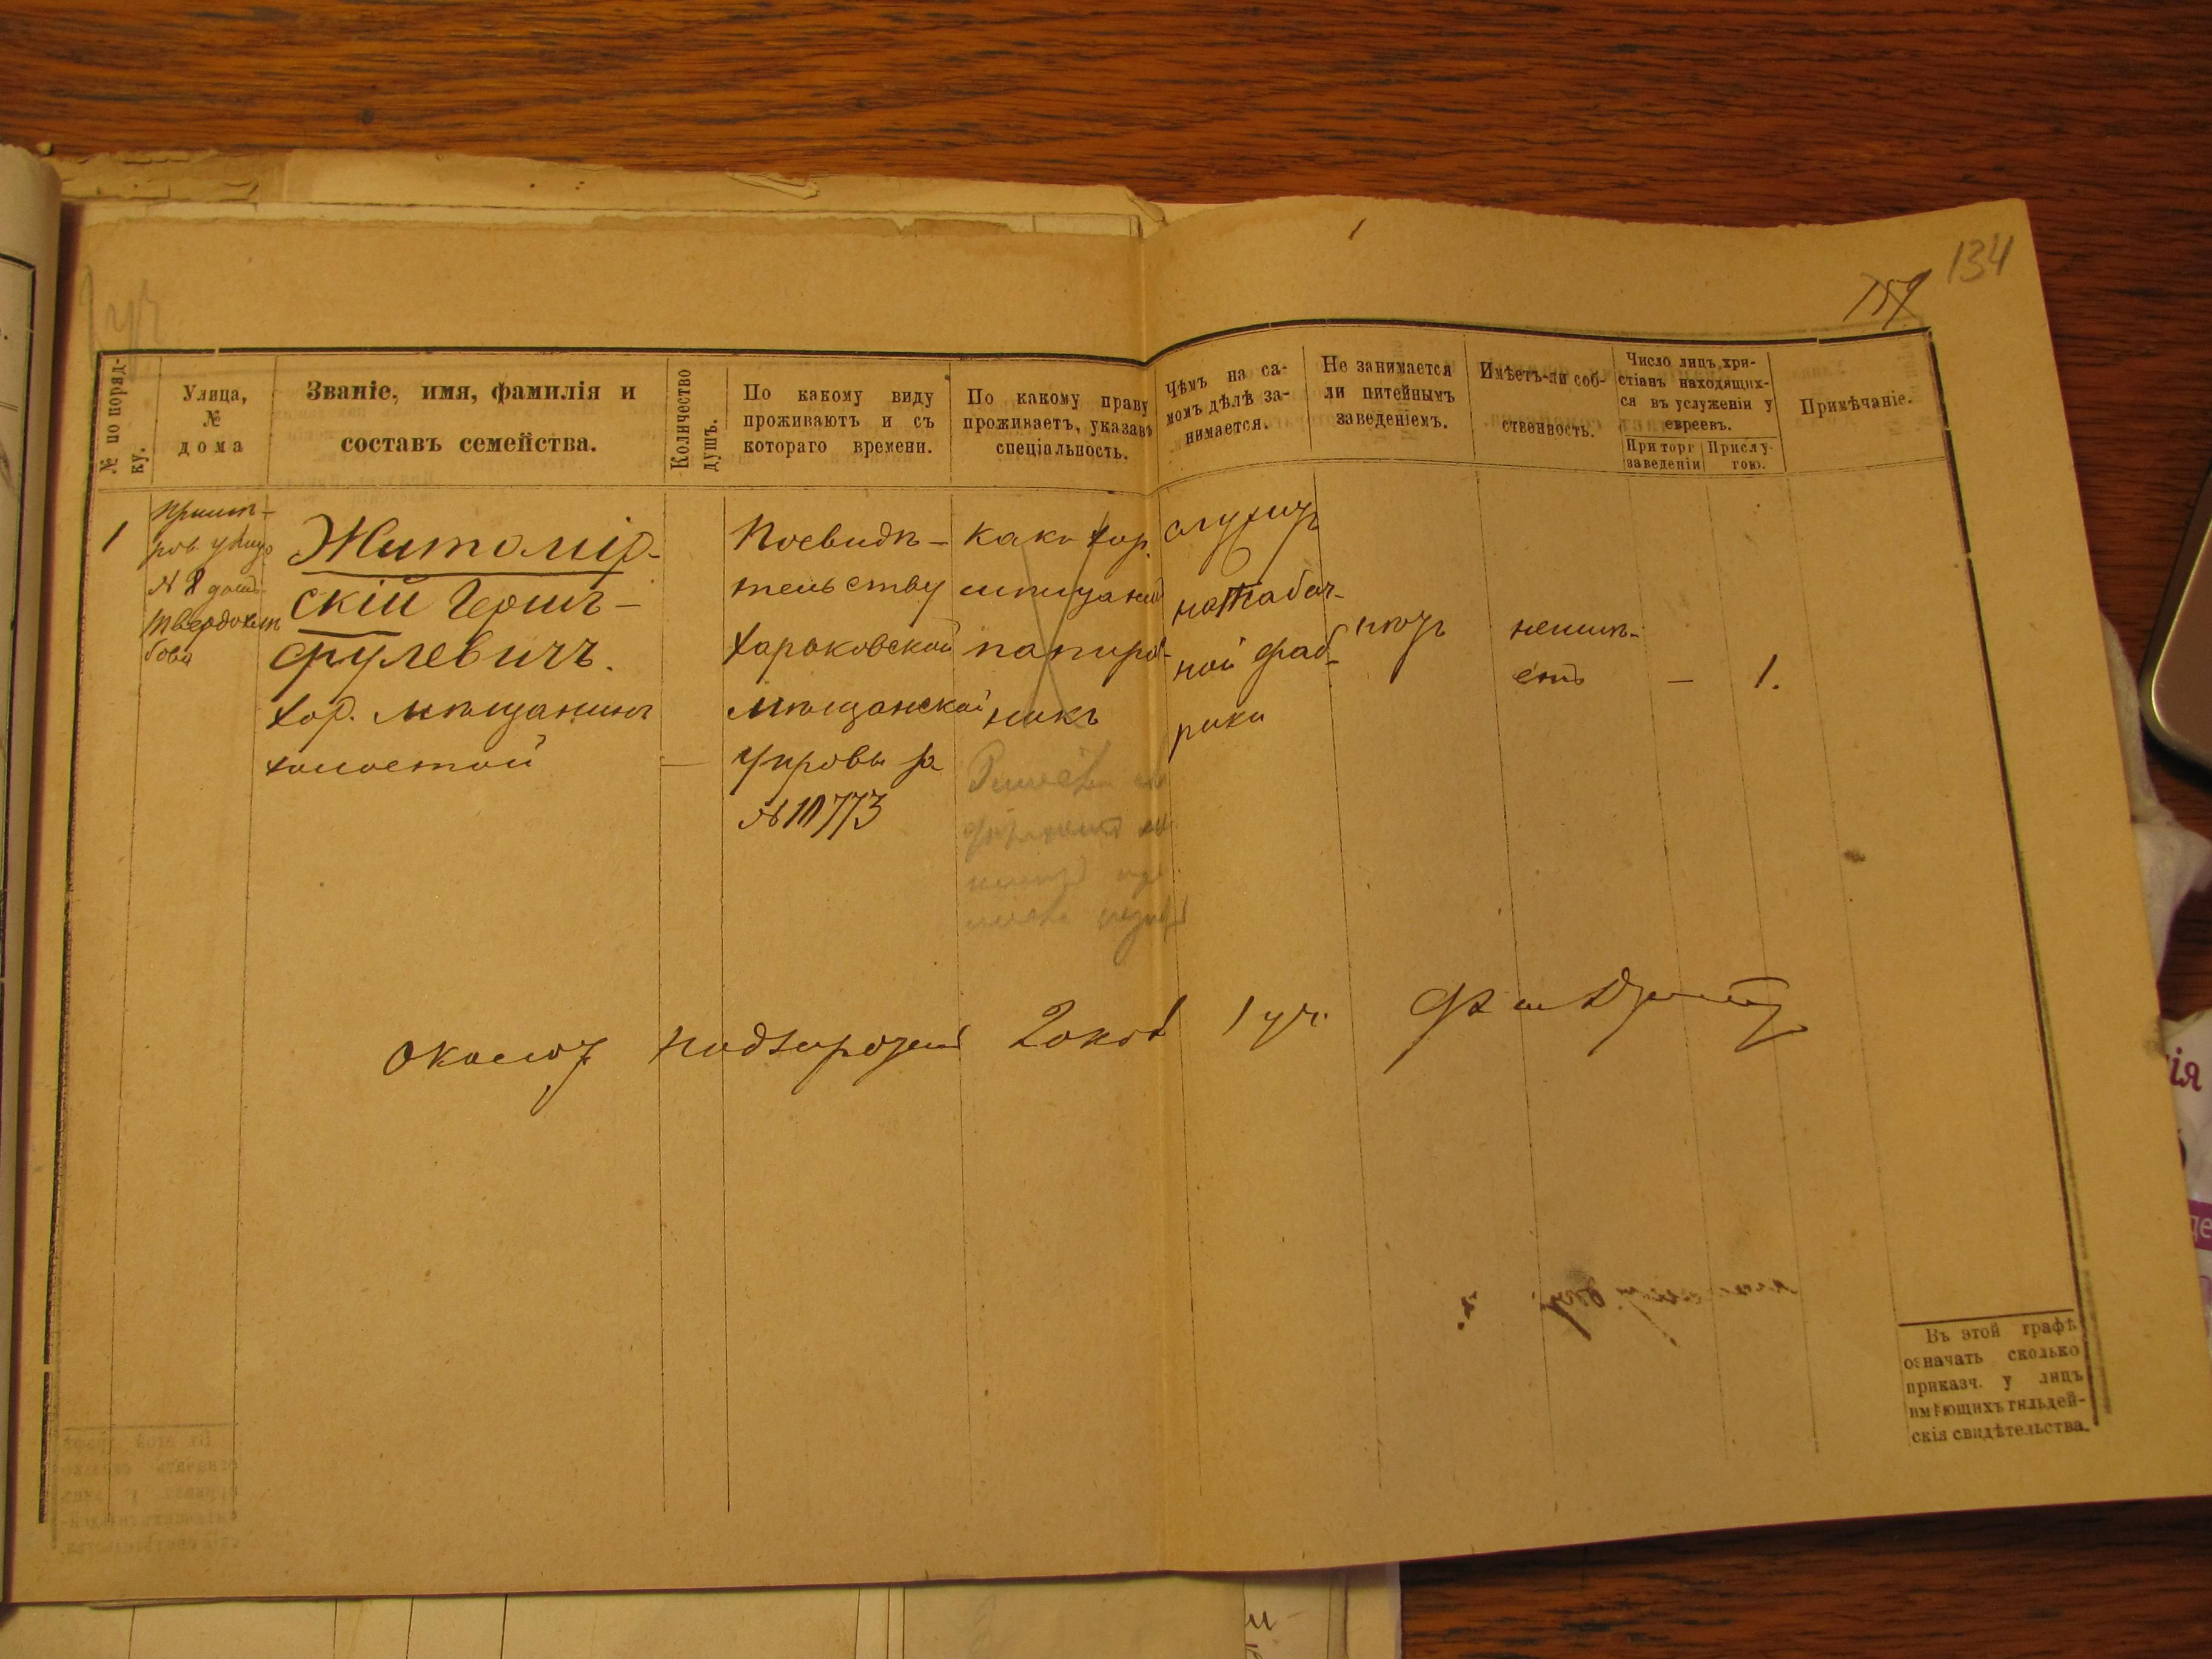 134
157
№ по поряд-
ку.
Улица,
№
дома
Званіе, имя, фамилія и
составъ семейства.
Количество
душъ.
По какому виду
проживаютъ и съ
котораго времени.
По какому праву
проживаетъ, указавъ
спеціальность.
Чѣмъ на са-
момъ дѣлѣ за-
нимается.
Не занимается
ли питейнымъ
заведеніемъ.
Имѣетъ-ли соб-
ственность.
Число лицъ хри-
стіанъ находящих-
ся въ услуженіи у
евреевъ.
При торг
заведеніи
Прислу-
гою.
Примѣчаніе.
1
№ 8
Житомір-
скій Герш-
фулевичъ.
хар. мѣщанинъ
холостой
—
По свидѣ-
тельству
Харьковской
мѣщанской
Управы за
№ 10773
какъ хар.
мѣщанин
папирос-
никъ
служитъ
на табач-
ной фаб-
рики
нѣтъ
неимѣ-
етъ
—
1.
Околот надзиратель 2 окол 1 уч.
Въ этой графѣ
означать сколько
приказч. у лицъ
имѣющихъ гильдей-
скія свидѣтельства.